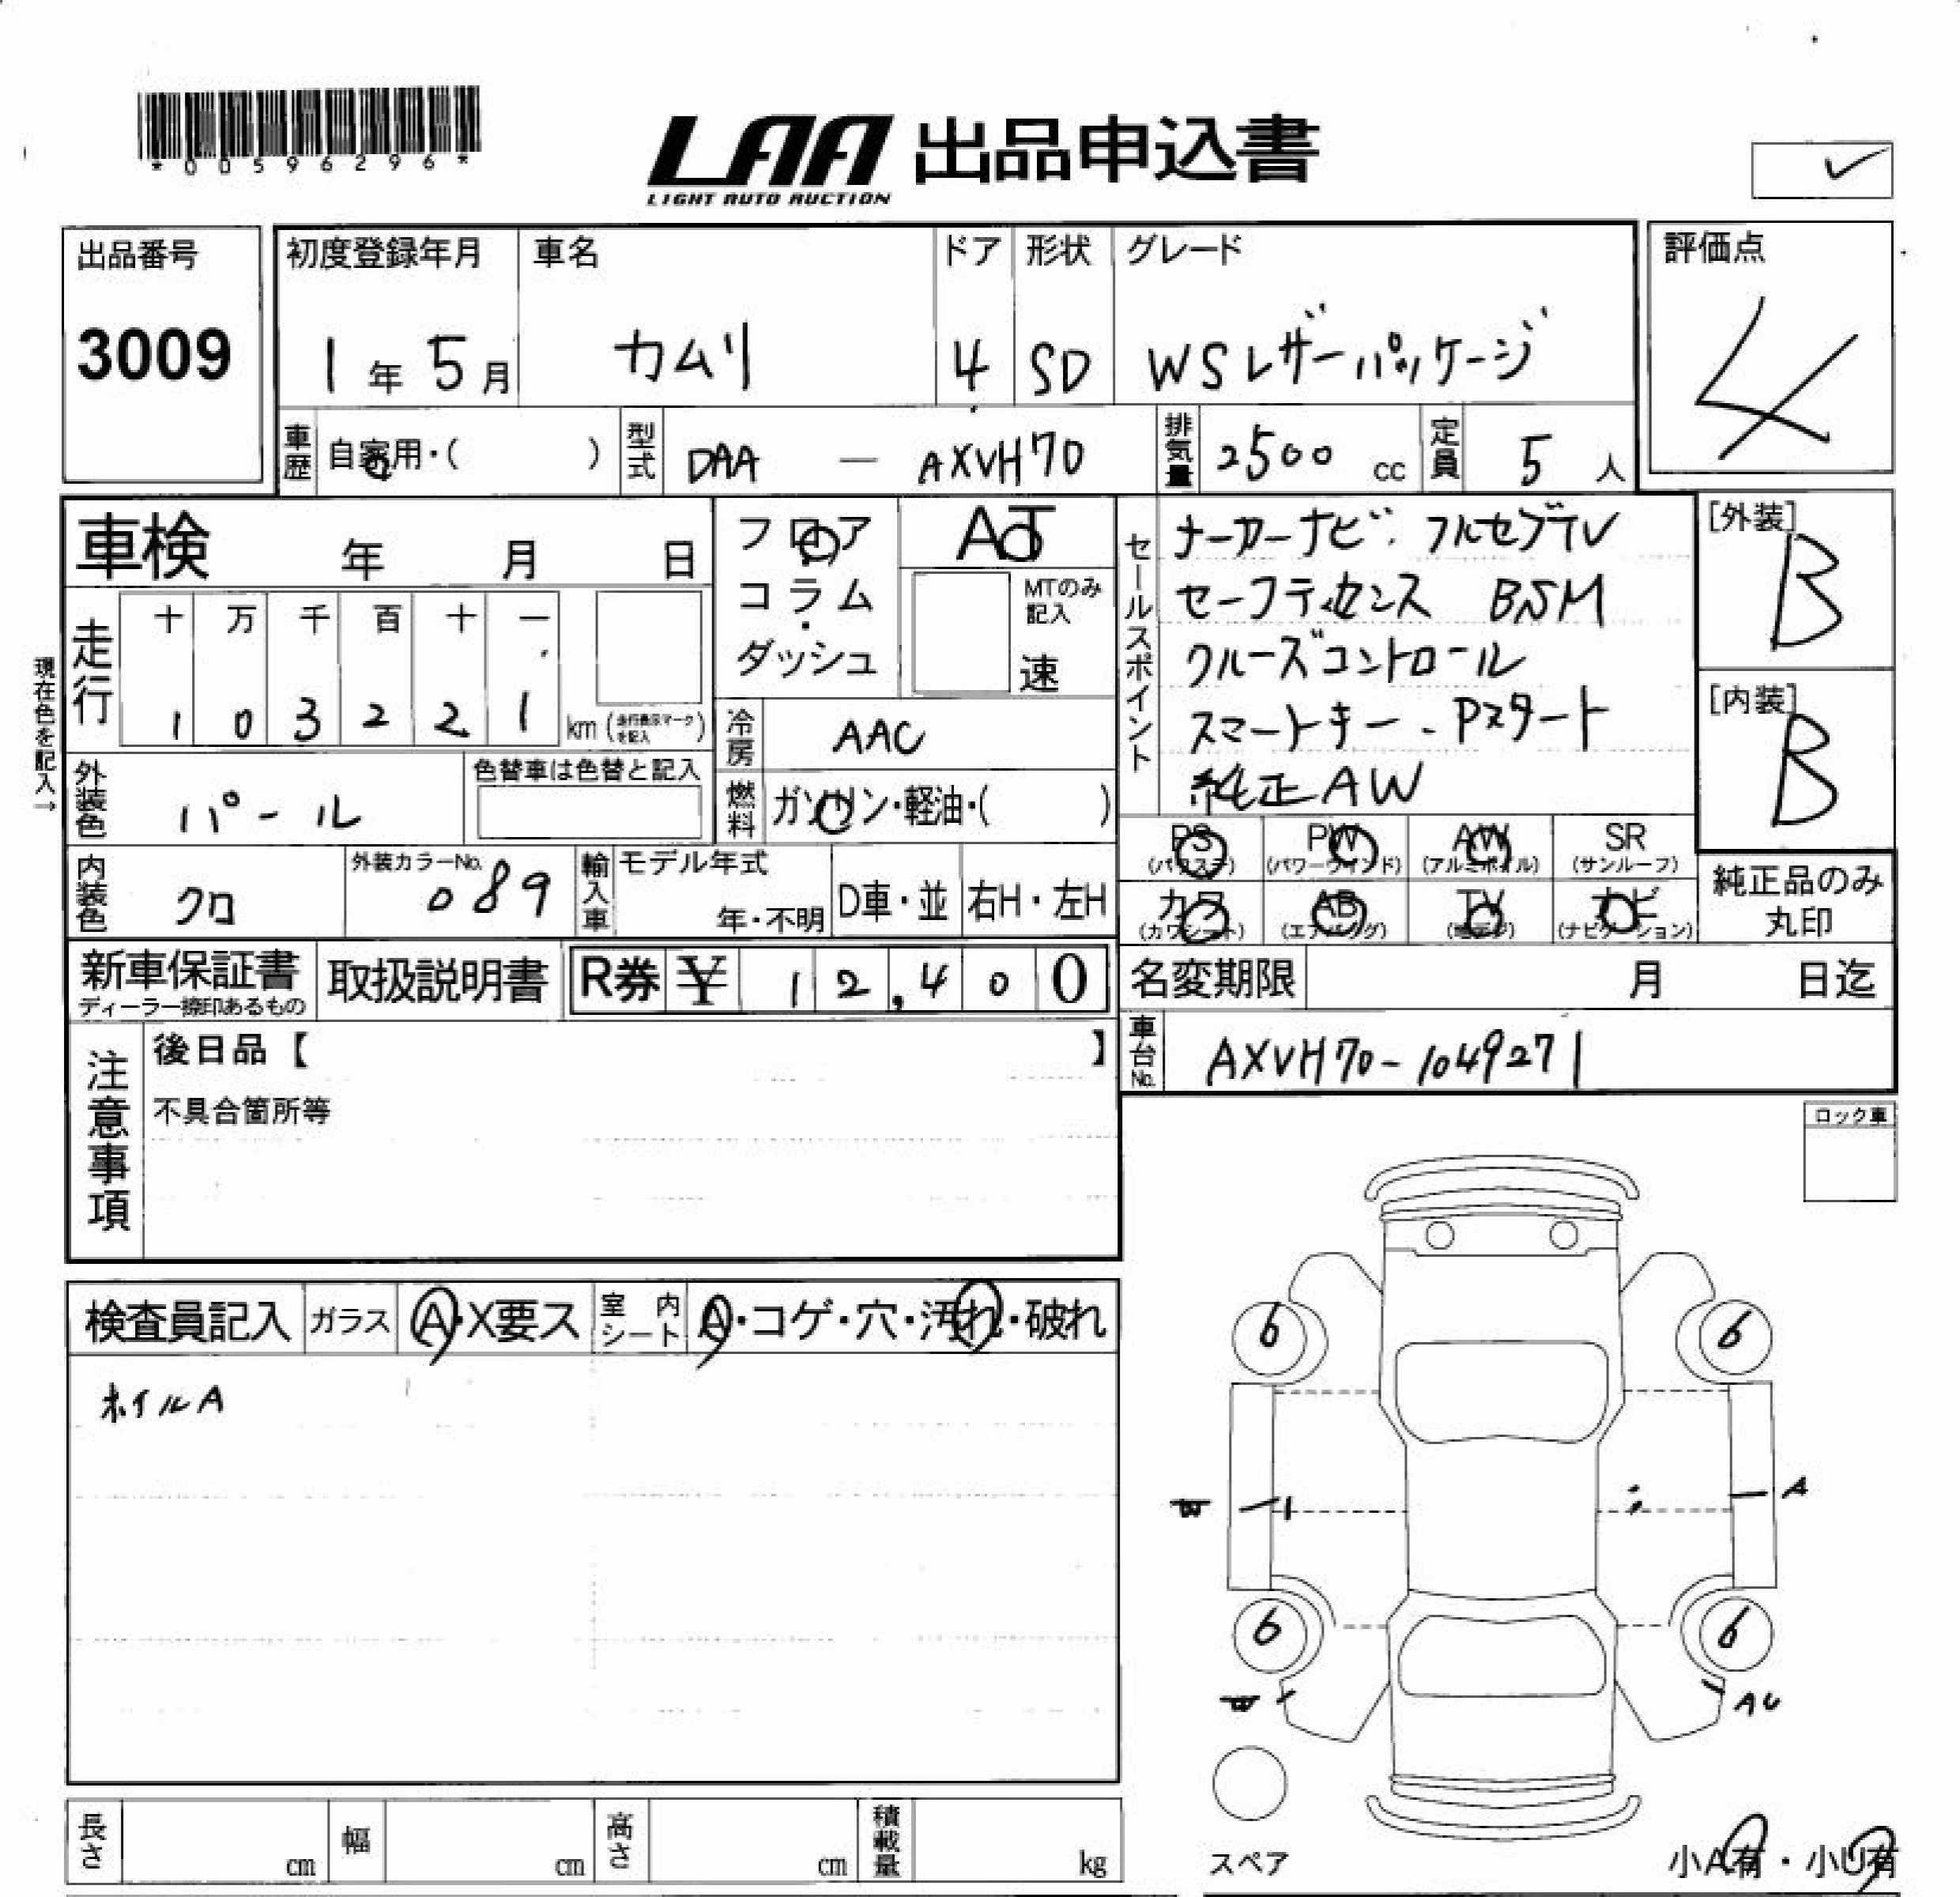 *00596296*
LAA 出品申込書
LIGHT AUTO AUCTION
出品番号
3009
初度登録年月
1年5月
車名
カムリ
ドア
4
形状
SD
グレード
WSレザーパッケージ
評価点
4
車歴
自家用・( )
型式
DAA — AXVH70
排気量
2500 cc
定員
5人
車検 年 月 日
現在色を記入→
走行
十 万 千 百 十 一
1 0 3 2 2 1 km (走行表示マークを記入)
フロア
コラム
ダッシュ
AT
MTのみ記入
速
セールスポイント
ナーカーナビ・フルセグTV
セーフティセンス BSM
クルーズコントロール
スマートキー・Pスタート
純正AW
[外装]
B
[内装]
B
冷房
AAC
外装色
パール
色替車は色替と記入
燃料
ガソリン・軽油・( )
PS
(パワステ)
PW
(パワーウインド)
AW
(アルミホイル)
SR
(サンルーフ)
内装色
クロ
外装カラーNo.
089
輸入車
モデル年式
年・不明
D車・並
右H・左H
カワ
(カワシート)
AB
(エアバッグ)
TV
(地デジ)
ナビ
(ナビゲーション)
純正品のみ
丸印
新車保証書
ディーラー捺印あるもの
取扱説明書
R券 ¥ 12,400
名変期限 月 日迄
車台No.
AXVH70-1049271
注意事項
後日品【 】
不具合箇所等
ロック車
検査員記入
ガラス
A・X要ス
室内シート
A・コゲ・穴・汚れ・破れ
ホイルA
6
6
A
6
6
AU
スペア
小A有・小U有
長さ cm
幅 cm
高さ cm
積載量 kg